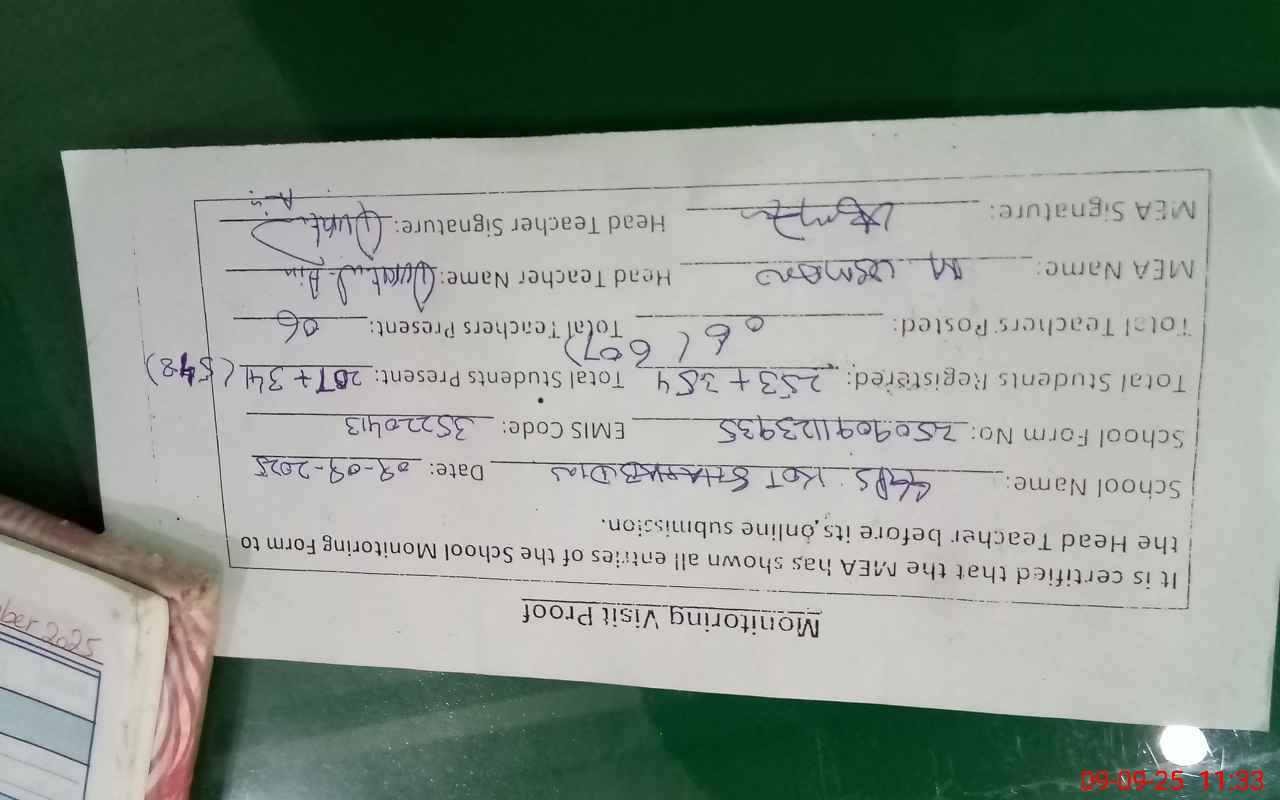 Monitoring Visit Proof
It is certified that the MEA has shown all entries of the School Monitoring Form to
the Head Teacher before its online submission.
School Name: GGPS KOT SHAHAB DIN Date: 09-09-2025
School Form No: 250909112393S EMIS Code: 35220413
Total Students Registered: 253 + 354 (607) Total Students Present: 207 + 341 (548)
Total Teachers Posted: 06 Total Teachers Present: 06
MEA Name: M. Usman Head Teacher Name: Qurat ul Ain
MEA Signature: Head Teacher Signature: Qurat Ain
ber 2025
09-09-25 11:33